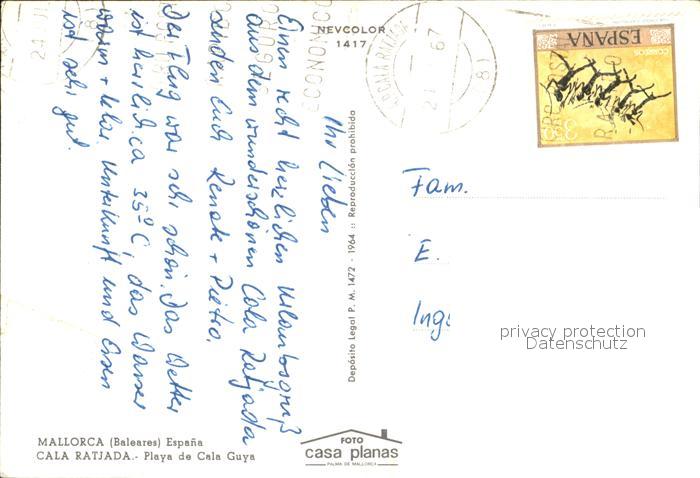 NEVCOLOR
1417
ESPAÑA
CORREOS
CALA RATJADA
21
67
(8)
ECONOMICO
Ihr Lieben
Einen recht herzlichen Urlaubsgruß
aus dem wunderschönen Cala Ratjada
senden Euch Renate + Pietro.
Der Flug war sehr schön. Das Wetter
ist herrlich ca 35° C, das Wasser
warm + klar, Unterkunft und Essen
ist sehr gut.
Depósito Legal P. M. 1472 - 1964 :: Reproducción prohibida
Fam.
E.
Ing
privacy protection
Datenschutz
MALLORCA (Baleares) España
CALA RATJADA.- Playa de Cala Guya
FOTO
casa planas
PALMA DE MALLORCA